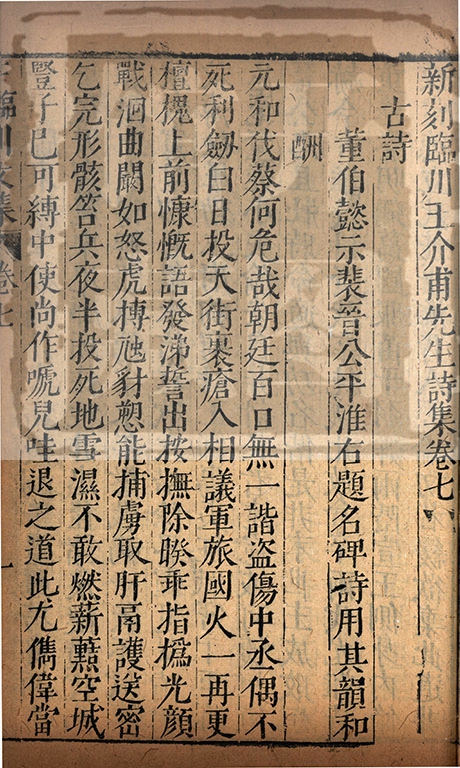 新刻臨川王介甫先生詩集卷七
古詩
董伯懿示裴晉公平淮右題名碑詩用其韻和
酬
元和伐蔡何危哉朝廷百口無一諧盜傷中丞偶不
死利劒白日投天街裹瘡入相議軍旅國火一再更
檀槐上前慷慨語發涕誓出按撫除睽乖指撝光顏
戰洄曲闞如怒虎摶虺豺愬能捕虜取肝鬲護送密
乞完形骸笞兵夜半投死地雪濕不敢燃薪爇空城
豎子已可縛中使尚作啼兒哇退之道此尤儁偉當
臨川文集
卷七
一